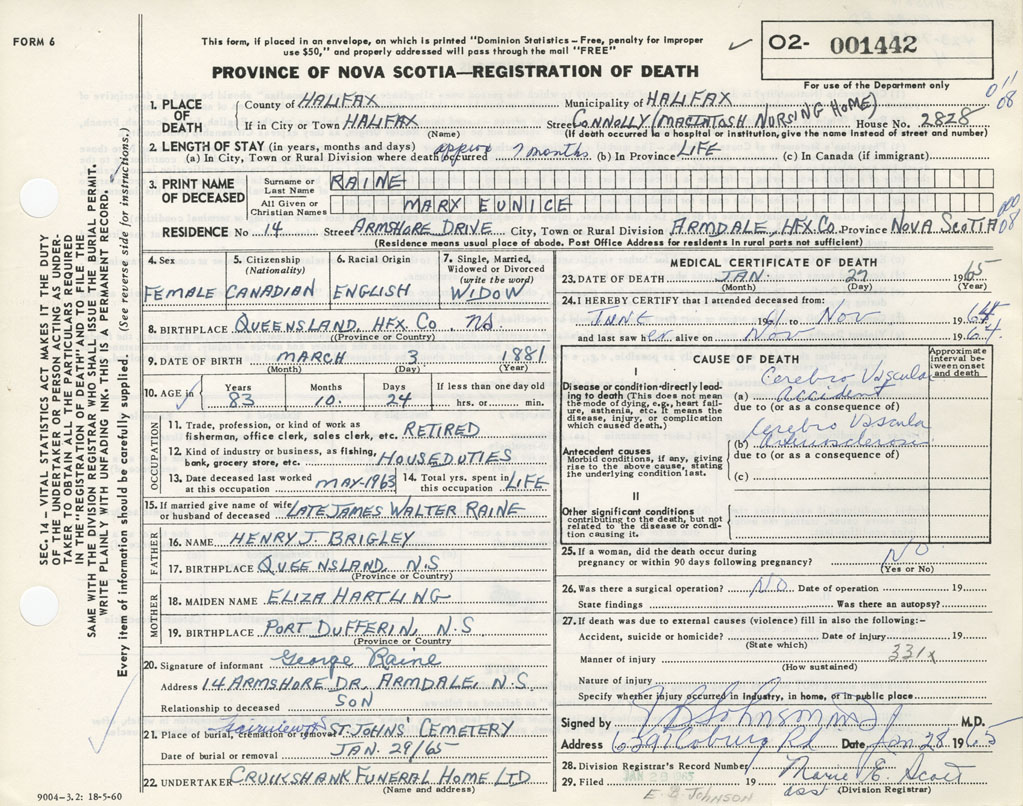 FORM 6
This form, if placed in an envelope, on which is printed "Dominion Statistics - Free, penalty for improper
use $50," and properly addressed will pass through the mail "FREE"
02- 001442
For use of the Department only
PROVINCE OF NOVA SCOTIA—REGISTRATION OF DEATH
1. PLACE OF DEATH
County of HALIFAX Municipality of HALIFAX
If in City or Town HALIFAX Street CONNOLLY (MACINTOSH NURSING HOME) House No. 2828
(Name) (If death occurred in a hospital or institution, give the name instead of street and number)
2. LENGTH OF STAY (in years, months and days)
(a) In City, Town or Rural Division where death occurred approx 7 months (b) In Province LIFE (c) In Canada (if immigrant)
3. PRINT NAME OF DECEASED
Surname or Last Name RAINE
All Given or Christian Names MARY EUNICE
RESIDENCE No 14 Street ARMSHORE DRIVE City, Town or Rural Division ARMDALE, HFX Co. Province NOVA SCOTIA
(Residence means usual place of abode. Post Office Address for residents in rural parts not sufficient)
4. Sex FEMALE
5. Citizenship (Nationality) CANADIAN
6. Racial Origin ENGLISH
7. Single, Married, Widowed or Divorced (write the word) WIDOW
8. BIRTHPLACE QUEENSLAND, HFX Co. NS.
(Province or Country)
9. DATE OF BIRTH MARCH 3 1881
(Month) (Day) (Year)
10. AGE in Years 83 Months 10. Days 24 If less than one day old hrs. or min.
OCCUPATION
11. Trade, profession, or kind of work as fisherman, office clerk, sales clerk, etc. RETIRED
12. Kind of industry or business, as fishing, bank, grocery store, etc. HOUSEDUTIES
13. Date deceased last worked at this occupation MAY-1963 14. Total yrs. spent in this occupation LIFE
15. If married give name of wife or husband of deceased LATE JAMES WALTER RAINE
FATHER
16. NAME HENRY J. BRIGLEY
17. BIRTHPLACE QUEENSLAND, N.S
(Province or Country)
MOTHER
18. MAIDEN NAME ELIZA HARTLING
19. BIRTHPLACE PORT DUFFERIN, N.S.
(Province or Country)
20. Signature of informant George Raine
Address 14 ARMSHORE DR, ARMDALE, N.S
Relationship to deceased SON
21. Place of burial, cremation or removal Fairview ST. JOHNS' CEMETERY
Date of burial or removal JAN. 29/65
22. UNDERTAKER CRUIKSHANK FUNERAL HOME LTD
(Name and address)
9004-3.2: 18-5-60
MEDICAL CERTIFICATE OF DEATH
23. DATE OF DEATH JAN. 27 1965
(Month) (Day) (Year)
24. I HEREBY CERTIFY that I attended deceased from:
JUNE 1961 to Nov 1964
and last saw her alive on Nov 1964.
CAUSE OF DEATH
Approximate interval between onset and death
I
Disease or condition directly leading to death (This does not mean the mode of dying, e.g., heart failure, asthenia, etc. It means the disease, injury, or complication which caused death.)
(a) Cerebro Vascular Accident
due to (or as a consequence of)
Antecedent causes
Morbid conditions, if any, giving rise to the above cause, stating the underlying condition last.
(b) Cerebro Vascular Arteriosclerosis
due to (or as a consequence of)
(c)
II
Other significant conditions
contributing to the death, but not related to the disease or condition causing it.
25. If a woman, did the death occur during pregnancy or within 90 days following pregnancy? NO
(Yes or No)
26. Was there a surgical operation? NO Date of operation 19
State findings Was there an autopsy?
27. If death was due to external causes (violence) fill in also the following:-
Accident, suicide or homicide? Date of injury 19
(State which)
Manner of injury 331x
(How sustained)
Nature of injury
Specify whether injury occurred in Industry, in home, or in public place
Signed by J B Johnson md M.D.
Address 6391 Coburg Rd Date Jan 28 1965
28. Division Registrar's Record Number
29. Filed 19 Marie E. Scott
(Division Registrar)
E. B. JOHNSON
SEC. 14 - VITAL STATISTICS ACT MAKES IT THE DUTY
OF THE UNDERTAKER OR PERSON ACTING AS UNDER-
TAKER TO OBTAIN ALL THE PARTICULARS REQUIRED
IN THE "REGISTRATION OF DEATH" AND TO FILE THE
SAME WITH THE DIVISION REGISTRAR WHO SHALL ISSUE THE BURIAL PERMIT.
WRITE PLAINLY WITH UNFADING INK. THIS IS A PERMANENT RECORD.
Every item of information should be carefully supplied. (See reverse side for instructions.)